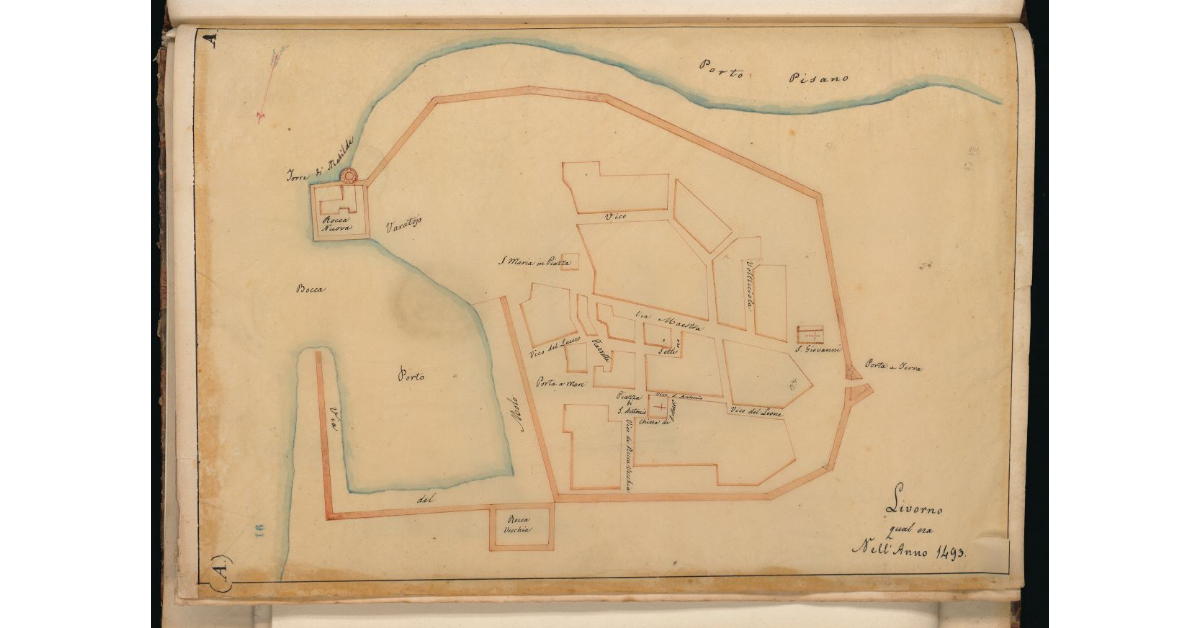 A
Porto Pisano
Torre di Matilde
Rocca
Nuova
Varatojo
Vico
S. Maria in Piazza
Volticciola
Bocca
Via Maestra
S. Giovanni
Vico del Lauro
Porta a Terra
Porto
Porta a Mare
Piazza
di
S. Antonio
Vico S. Antonio
Chiesa di
Vico del Leone
Via
Molo
Vico di Rocca Vecchia
del
Rocca
Vecchia
Livorno
qual era
Nell'Anno 1493.
(A)